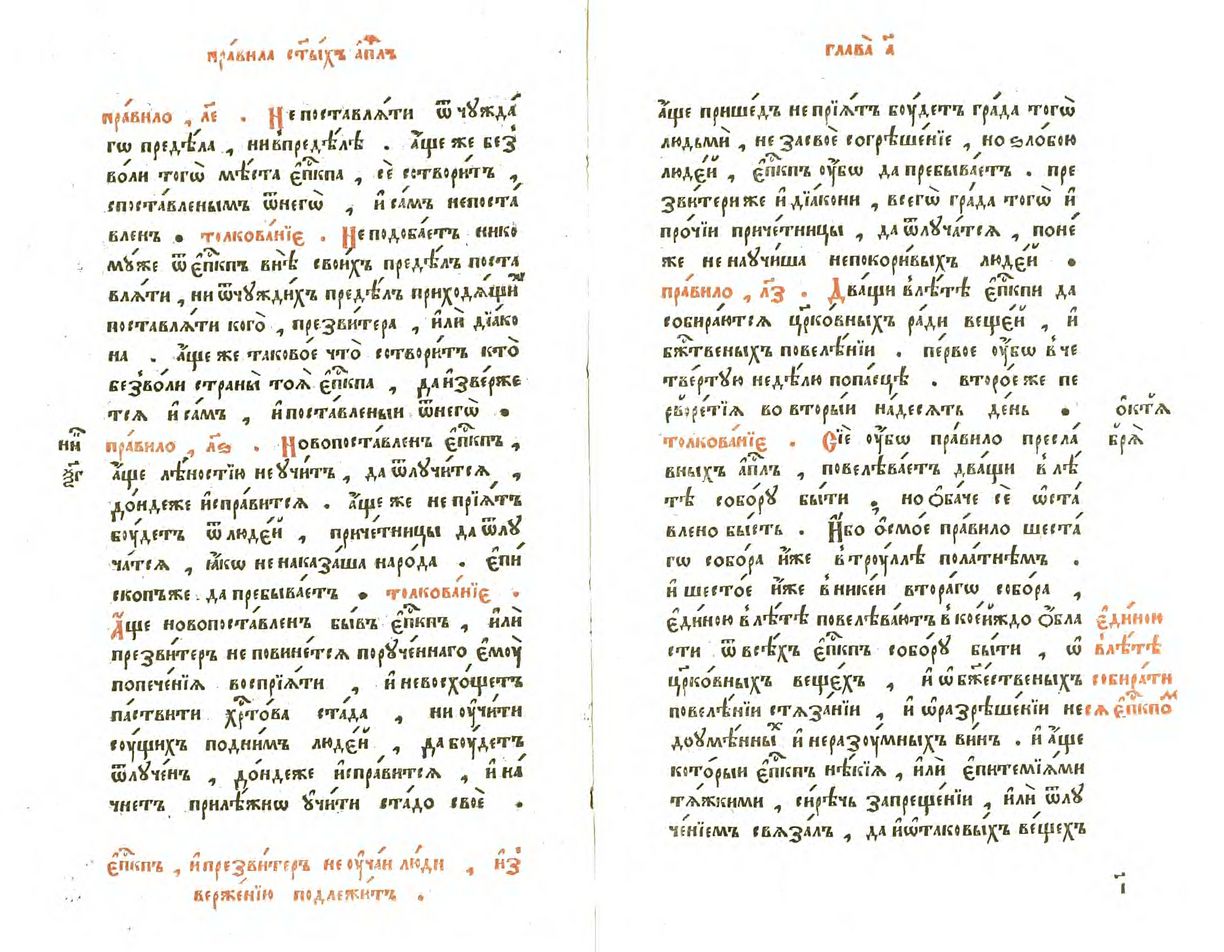 пра́вила ст҃ы́хъ а҆пⷭ҇лъ
пра́вило , л҃е . Не поставлѧ́ти ѿ чꙋжда́
гѡ предѣ́ла , нивпредѣ́лѣ . а҆́ще же без̾
во́ли тогѡ̀ мѣ́ста є҆пⷭ҇кпа , сѐ сотвори́тъ ,
споставленымъ ѿнегѡ̀ , и҆ са́мъ непоста́
вленъ . толкова́нїе . Не подоба́етъ нико
мꙋ́же ѿ є҆пⷭ҇кпъ внѣ̀ свои́хъ предѣ́лъ поста
влѧ́ти , ни ѿчꙋжди́хъ предѣ́лъ приходѧ́щиⷯ
поставлѧ́ти кого̀ , презви́тера , и҆лѝ дїа́ко
на . а҆́ще же таково́е что̀ сотвори́тъ кто̀
без̾во́ли страны̀ тоѧ̀ є҆пⷭ҇кпа , да и҆зве́рже
тсѧ и҆ са́мъ , и҆ поста́вленыи ѿнегѡ̀ .
пра́вило , л҃ѕ . Новопоста́вленъ є҆пⷭ҇кпъ ,
а҆́ще лѣ́ностїю не ᲂу҆чи́тъ , да ѿлꙋчи́тсѧ ,
до́ндеже и҆спра́витсѧ . а҆́ще же не прїѧ́тъ
бꙋ́детъ ѿ люде́й , приче́тницы да ѿлꙋ
ча́тсѧ , ꙗ҆́кѡ не наказа́ша наро́да . є҆пи́
скопъже да пребыва́етъ . толкова́нїе .
А҆́ще новопоста́вленъ бы́въ є҆пⷭ҇кпъ , и҆лѝ
презви́теръ не повине́тсѧ порꙋче́ннаго є҆мꙋ̀
попече́нїѧ воспрїѧ́ти , и҆ невосхо́щетъ
па́ствити хрⷭ҇то́ва ста́да , ни ᲂу҆чи́ти
сꙋ́щихъ подни́мъ люде́й , да бꙋ́детъ
ѿлꙋче́нъ , до́ндеже и҆спра́витсѧ , и҆ на́
чнетъ прилѣ́жнѡ ᲂу҆чи́ти ста́до своѐ .
є҆пⷭ҇кпъ , и҆ презви́теръ не ᲂу҆ча́и лю́ди , и҆з̾
верже́нїю подлежи́тъ .
глава̀ а҃
а҆́ще прише́дъ не прїѧ́тъ бꙋ́детъ гра́да тогѡ̀
людьмѝ , не засвоѐ согрѣше́нїе , но ѕло́бою
люде́й , є҆пⷭ҇кпъ ᲂу҆́бѡ да пребыва́етъ . пре
зви́тери же и҆ дїа́кони , всегѡ̀ гра́да тогѡ̀ и҆
про́чїи приче́тницы , да ѿлꙋча́тсѧ , поне́
же не наꙋчи́ша непокори́выхъ люде́й .
пра́вило , л҃з . Два́щи влѣ́тѣ є҆пⷭ҇кпи да
собира́ютсѧ цр҃ко́вныхъ ра́ди веще́й , и҆
бж҃твеныхъ повелѣ́нїи . пе́рвое ᲂу҆́бѡ в че
тве́ртꙋю недѣ́лю попа́сцѣ . второ́е же пе
рворе́тїѧ во вторы́й на́десѧть де́нь .
толкова́нїе . Сїѐ ᲂу҆́бѡ пра́вило пресла́
вныхъ а҆пⷭ҇лъ , повелѣва́етъ два́щи в лѣ́
тѣ собо́рꙋ бы́ти , но ѻ҆ба́че сѐ ѡ҆ста́
влено бы́сть . И҆́бо ѻ҆смо́е пра́вило шеста́
гѡ собо́ра и҆́же в трꙋ́ллѣ пола́тнѣмъ .
и҆ шесто́е и҆́же в нике́и втора́гѡ собо́ра ,
є҆ди́ною в лѣ́тѣ повелѣва́ютъ в кое́йждо ѻ҆́бла
сти ѿ всѣ́хъ є҆пⷭ҇кпъ собо́рꙋ бы́ти , ѡ҆
цр҃ко́вныхъ веще́хъ , и҆ ѡ бж҃е́ственыхъ
повелѣ́нїи стѧза́нїи , и҆ ѡ҆разрѣше́нїи не
доꙋмѣ́нныⷯ и҆ неразꙋ́мныхъ ви́нъ . и҆ а҆́ще
кото́рыи є҆пⷭ҇кпъ нѣ́кїѧ , и҆лѝ є҆питемїѧми
тѧ́жкими , си́рѣчь запреще́нїи , и҆лѝ ѿлꙋ
че́нїемъ свѧза́лъ , да и҆ ѡ҆таковы́хъ ве́щехъ
ѻ҆ктѧ́
брѧ̀
є҆ди́ною
влѣ́тѣ
собира́ти
сѧ є҆пⷭ҇кпоⷨ
і҃